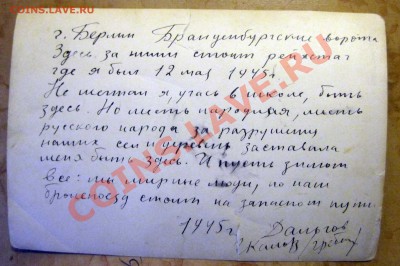 COINS.LAVE.RU
г. Берлин Бранденбургские ворота
Здесь за ними стоит рейхстаг
где я был 12 мая 1945г.
Не мечтал я учась в школе, быть
здесь. Но месть народная, месть
русского народа за разрушину
наших сел и деревень заставила
меня быть здесь. И пусть знают
все: мы мирные люди, но наш
бронепоезд стоит на запасном пути.
1945г.
COINS.LAVE.RU